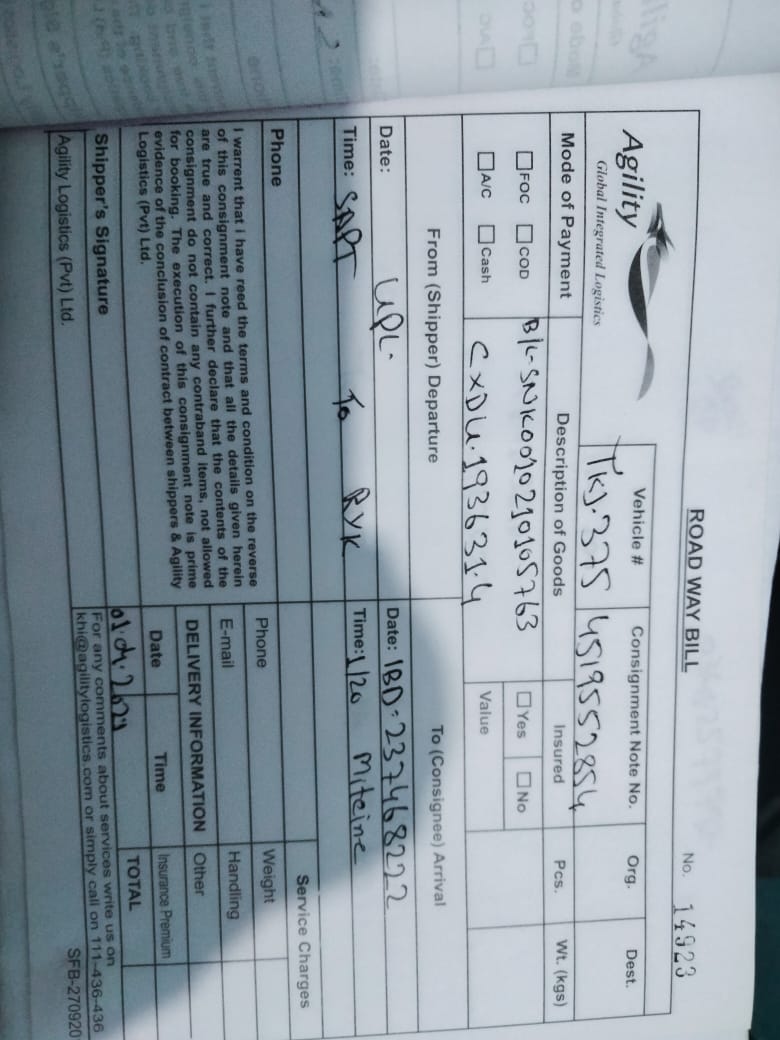 ROAD WAY BILL
No. 14923
Agility
Global Integrated Logistics
Vehicle #
Consignment Note No.
Org.
Dest.
TKJ.375
4519552854
Mode of Payment
Description of Goods
Insured
Pcs.
Wt. (kgs)
FOC
COD
B/L-SNK0010210105763
Yes
No
A/C
Cash
CXDU.193631.4
Value
From (Shipper) Departure
To (Consignee) Arrival
Date: UPL.
Date: IBD:237468222
Time: SAPT To RYK
Time: 1/20 Miteine
Service Charges
Phone
Phone
Weight
E-mail
Handling
I warrent that i have reed the terms and condition on the reverse
of this consignment note and that all the details given herein
are true and correct. I further declare that the contents of the
consignment do not contain any contraband items, not allowed
for booking. The execution of this consignment note is prime
evidence of the conclusion of contract between shippers & Agility
Logistics (Pvt) Ltd.
DELIVERY INFORMATION
Other
Date
Time
Insurance Premium
TOTAL
01.04.2021
Shipper's Signature
For any comments about services write us on
khi@agilitylogistics.com or simply call on 111-436-436
Agility Logistics (Pvt) Ltd.